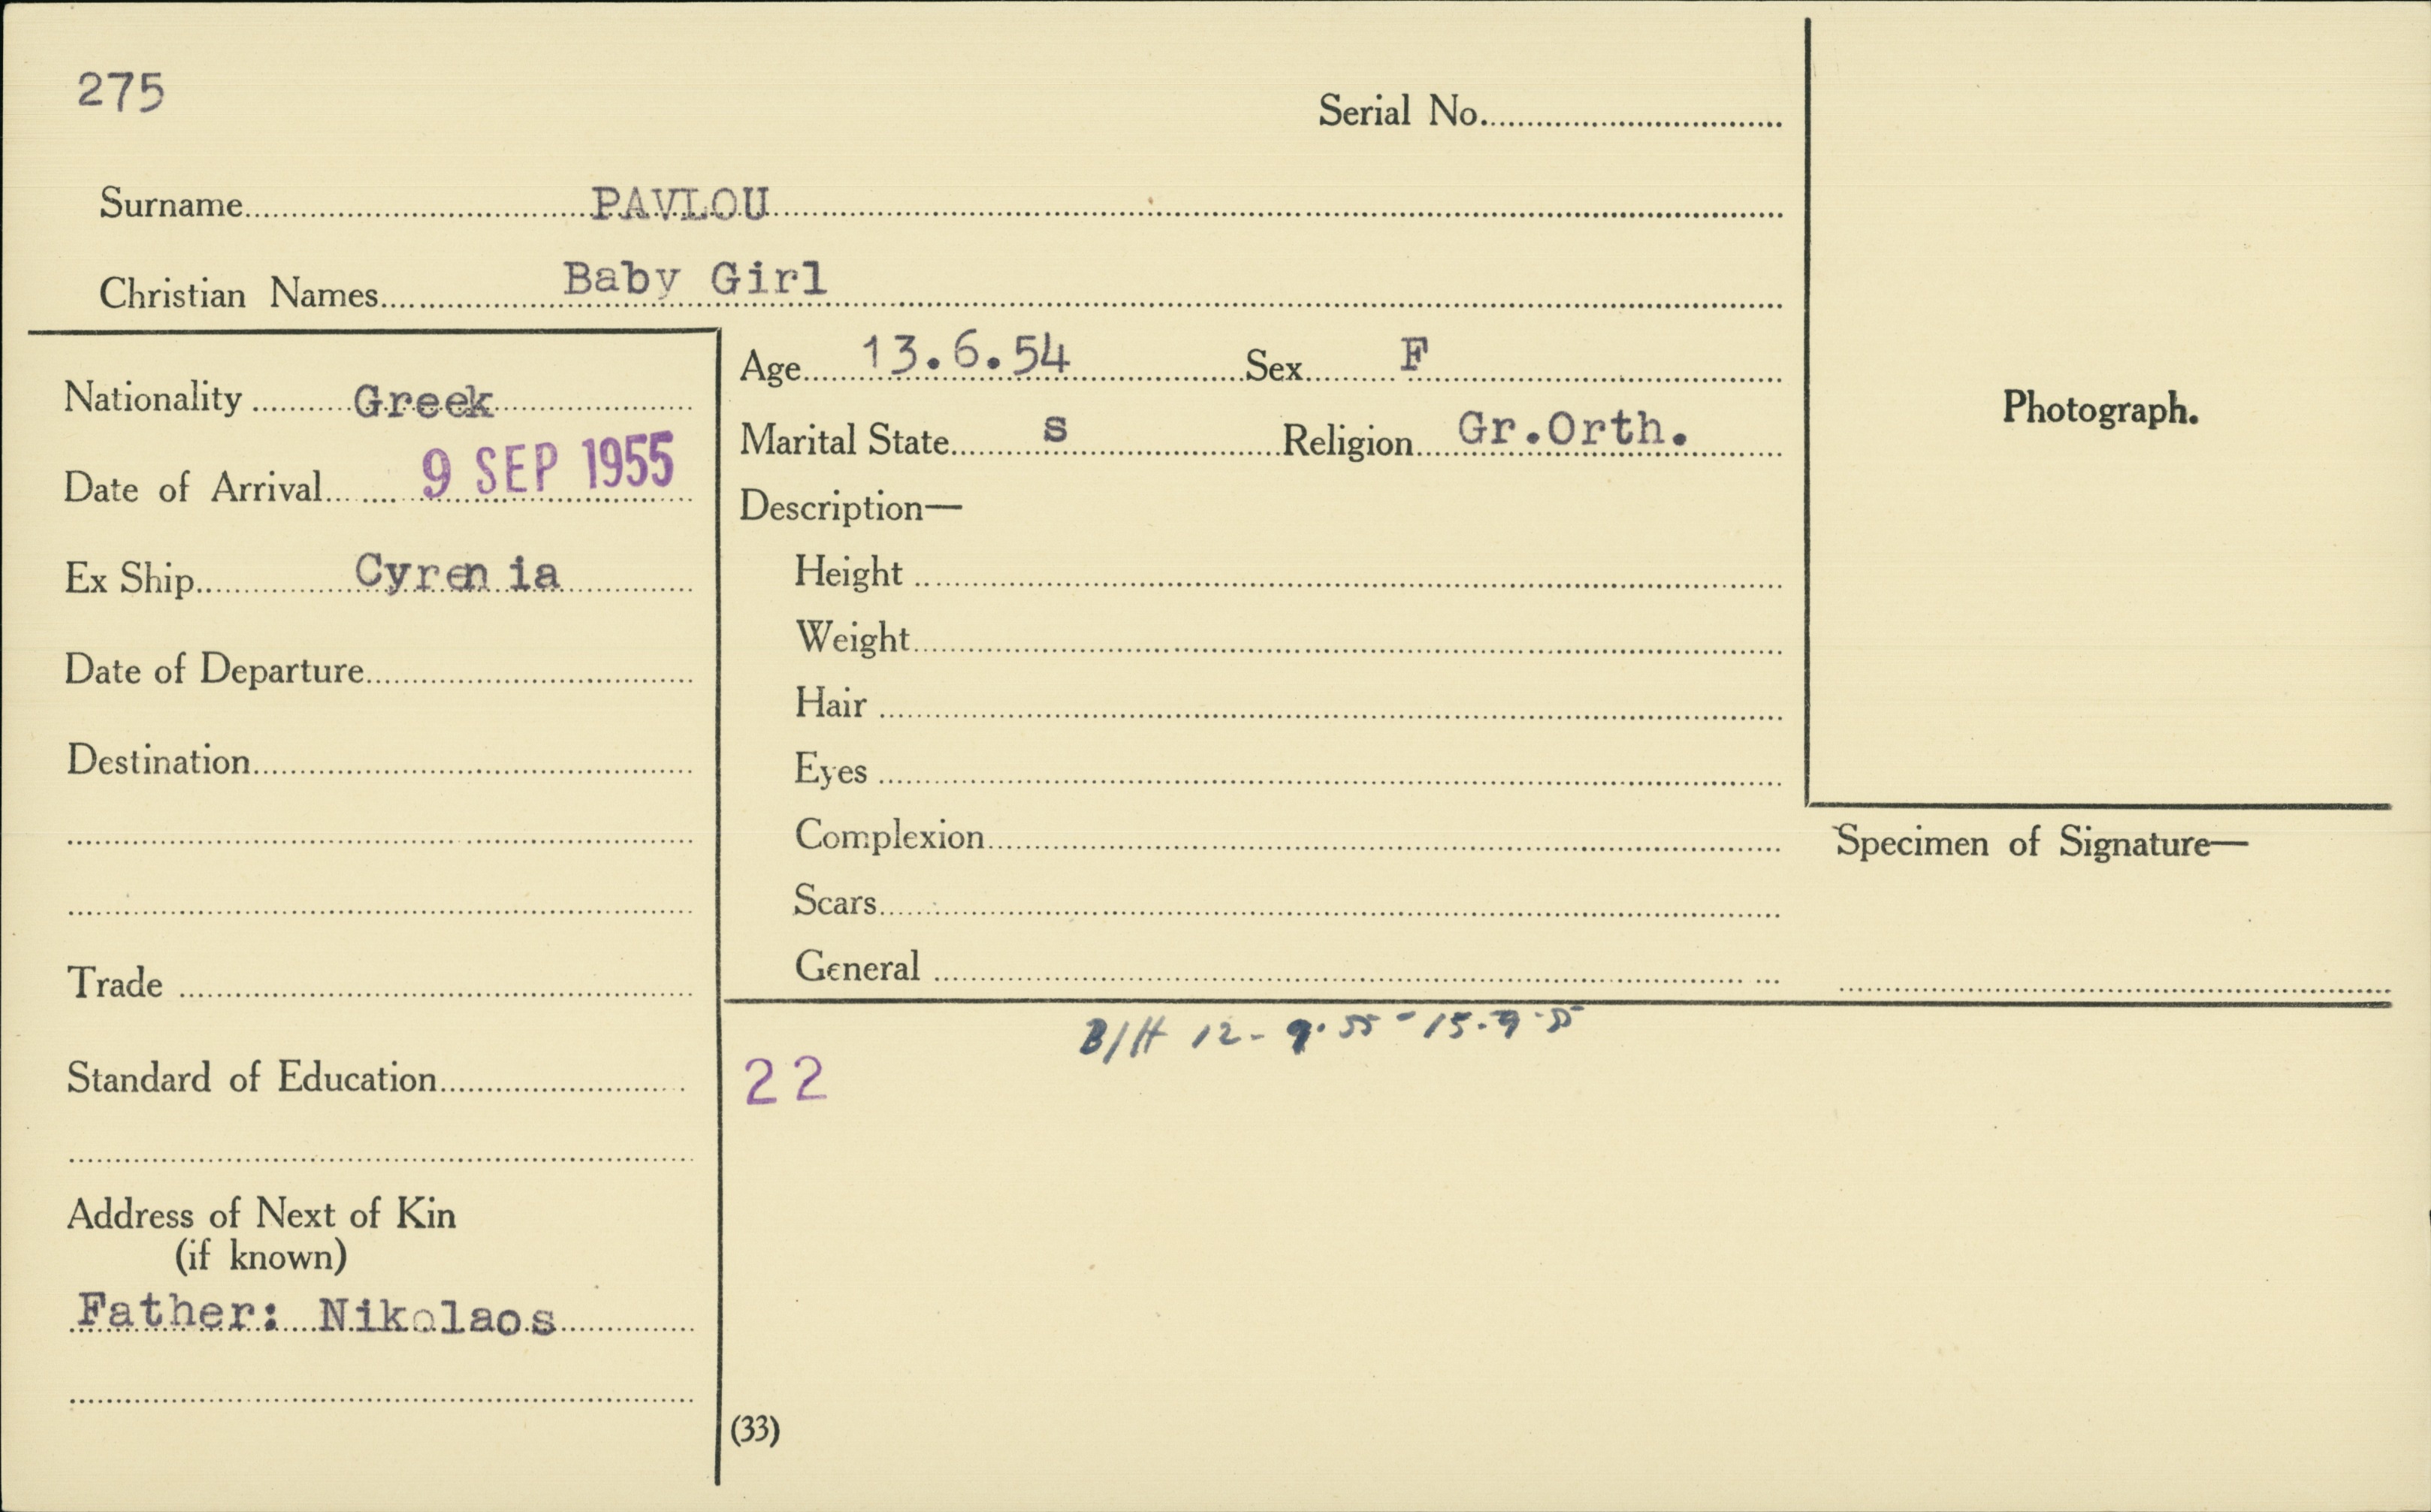 275
Serial No.
Surname PAVLOU
Christian Names Baby Girl
Nationality Greek
Date of Arrival 9 SEP 1955
Ex Ship Cyrenia
Date of Departure
Destination
Trade
Standard of Education
Address of Next of Kin
(if known)
Father: Nikolaos
Age 13.6.54 Sex F
Marital State s Religion Gr.Orth.
Description—
Height
Weight
Hair
Eyes
Complexion
Scars
General
Photograph.
Specimen of Signature—
B/H 12-9.55-15.9.55
22
(33)